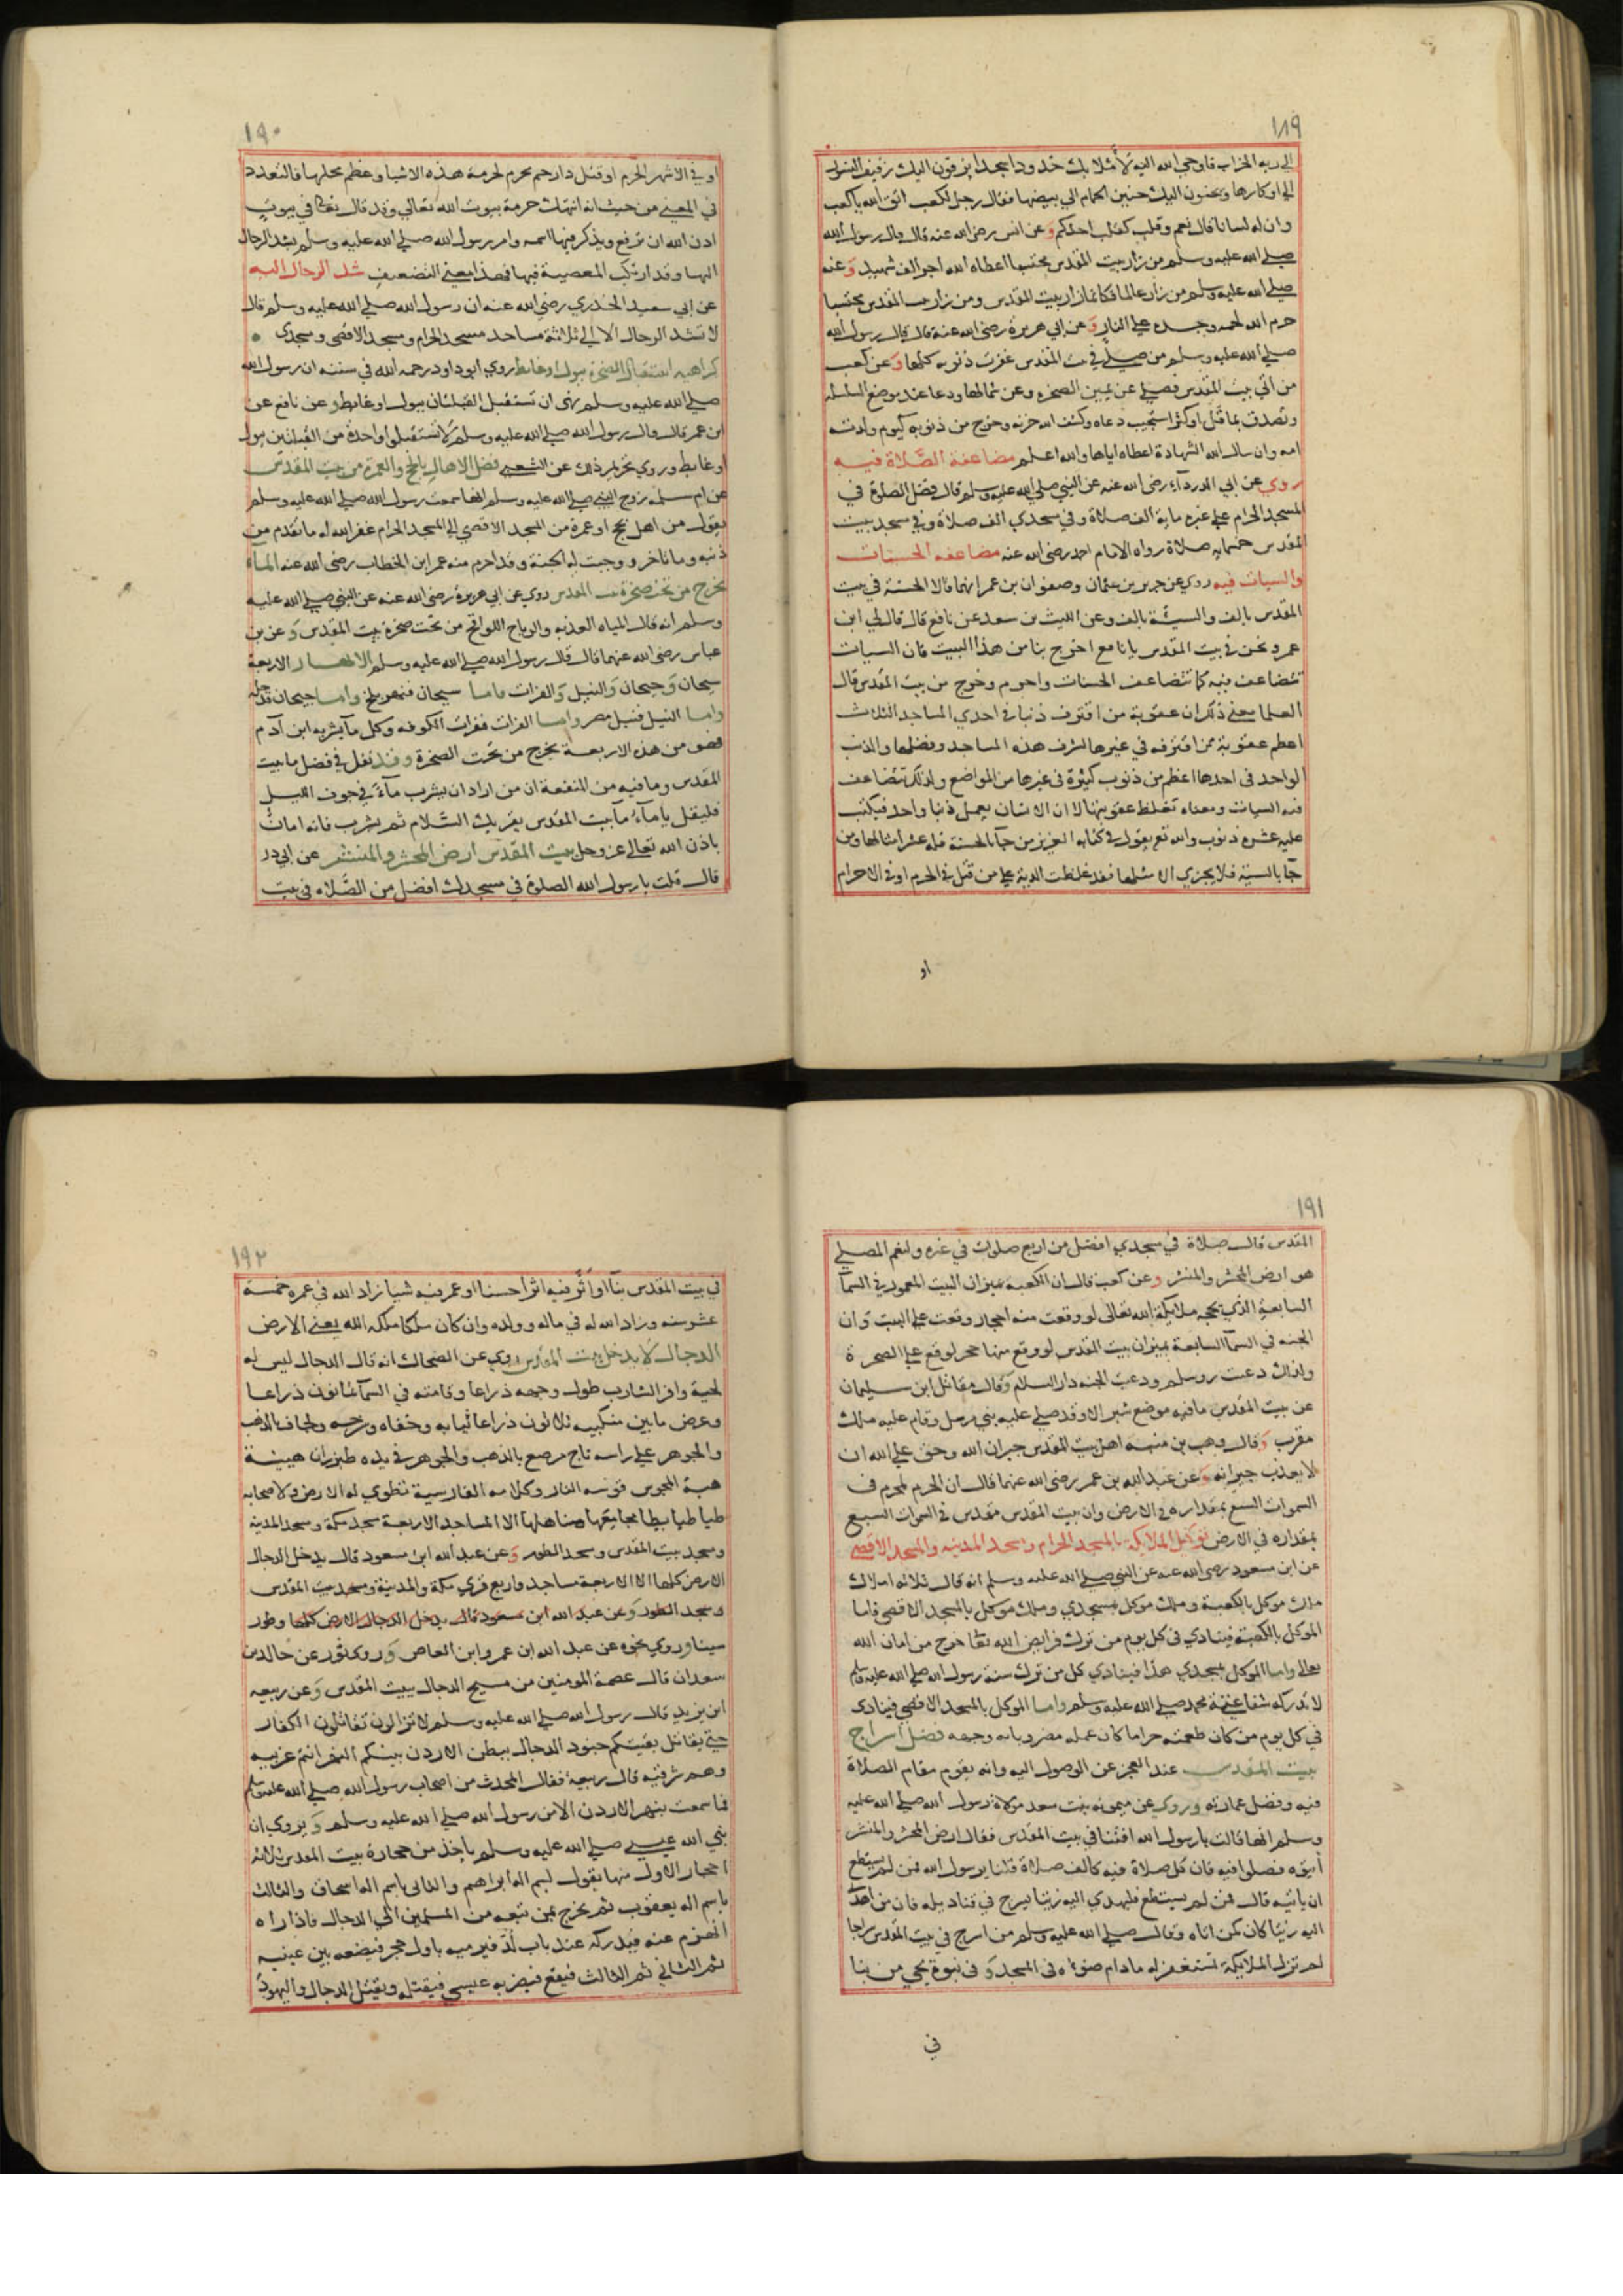 ١٨٩
الى ربه الخراب فاوحي الله اليه لأملانك خدودا سجدا يزفون اليك زفيف النسور
الي اوكارها ويحنون اليك حنين الحمام الي بيضها فقال رجل لكعب اتق الله ياكعب
وان له لسانا قال نعم وقلب كقلب احدكم وعن انس رضي الله عنه قال قال رسول الله
صلي الله عليه وسلم من زار بيت المقدس محتسبا اعطاه الله اجر الف شهيد وعنه
صلي الله عليه وسلم من زار عالما فكانما زار بيت المقدس ومن زار بيت المقدس محتسبا
حرم الله لحمه وجسده علي النار وعن ابي هريرة رضي الله عنه قال قال رسول الله
صلي الله عليه وسلم من صلي في بيت المقدس غفرت ذنوبه كلها وعن كعب
من اتي بيت المقدس فصلي عن يمين الصخره وعن شمالها ودعا عند موضع السلسله
وتصدق بما قل او كثر استجيب دعاه وكشف الله حزنه وخرج من ذنوبه كيوم ولدته
امه وان سال الله الشهادة اعطاه اياها والله اعلم مضاعفة الصلاة فيه
روي عن ابي الدرداء رضي الله عنه عن النبي صلي الله عليه وسلم قال فضل الصلوة في
المسجد الحرام علي غيره ماية الف صلاة وفي مسجدي الف صلاة وفي مسجد بيت
المقدس خمسماية صلاة رواه الامام احمد رضي الله عنه مضاعفه الحسنات
والسيات فيه روي عن جرير بن عثمان وصفوان بن عمر انهما قالا الحسنة في بيت
المقدس بالف والسيئة بالف وعن الليث بن سعد عن نافع قال قال لي ابن
عمر ونحن في بيت المقدس يانافع اخرج بنا من هذا البيت فان السيات
تتضاعف فيه كما تتضاعف الحسنات واحرم وخرج من بيت المقدس قال
العلما معني ذلك ان عقوبة من اقترف ذنبا في احدي المساجد الثلاث
اعظم عقوبة ممن اقترفه في غيرها لشرف هذه المساجد وفضلها والذنب
الواحد في احدها اعظم من ذنوب كثيرة في غيرها من المواضع ولذلك تتضاعف
فيه السيات ومعناه تغلظ عقوبتها لا ان الانسان يعمل ذنبا واحد فيكتب
عليه عشرة ذنوب والله تع يقول في كتابه العزيز من جآ بالحسنة فله عشر امثالها ومن
جآ بالسيئة فلا يجزي الا مثلها فقد غلظت الدية علي من قتل في الحرم او في الاحرام
او
١٩٠
او في الاشهر الحرم او قتل ذا رحم محرم لحرمة هذه الاشيا وعظم محلها فالتعدد
في المعني من حيث انه انتهك حرمة بيوت الله تعالي وقد قال تعالي في بيوت
اذن الله ان ترفع ويذكر فيها اسمه وامر رسول الله صلي الله عليه وسلم بشد الرحال
اليها وقد ارتكب المعصية فيها فهذا معني التضعيف شد الرحال اليه
عن ابي سعيد الخدري رضي الله عنه ان رسول الله صلي الله عليه وسلم قال
لا تشد الرحال الا الي ثلاثة مساجد مسجد الحرام ومسجد الاقصي ومسجدي
كراهيه استقبال الصخرة ببول او غايط روي ابو داود رحمه الله في سننه ان رسول الله
صلي الله عليه وسلم نهي ان تستقبل القبلتان ببول او غايط وعن نافع عن
ابن عمر قال قال رسول الله صلي الله عليه وسلم لا تستقبلوا واحدة من القبلتين ببول
او غايط وروي تحريم ذلك عن الشعبي فضل الاهلال بالحج والعمرة من بيت المقدس
عن ام سلمه زوج النبي صلي الله عليه وسلم انها سمعت رسول الله صلي الله عليه وسلم
يقول من اهل بحج او عمرة من المسجد الاقصي الي المسجد الحرام غفر الله له ما تقدم من
ذنبه وما تاخر ووجبت له الجنة وقد احرم منه عمر ابن الخطاب رضي الله عنه المآء
يخرج من تحت صخرة بيت المقدس روي عن ابي هريرة رضي الله عنه عن النبي صلي الله عليه
وسلم انه قال المياه العذبه والرياح اللواقح من تحت صخرة بيت المقدس وعن بن
عباس رضي الله عنهما قال قال رسول الله صلي الله عليه وسلم الانهار الاربعة
سيحان وجيحان والنيل والفرات فاما سيحان فنهر بلخ واما جيحان فدجله
واما النيل فنيل مصر واما الفرات ففرات الكوفه وكل مآ يشربه ابن آدم
فهو من هذه الاربعة يخرج من تحت الصخرة وقد نقل في فضل ما بيت
المقدس وما فيه من المنفعة ان من اراد ان يشرب مآءً في جوف الليل
فليقل يا مآء مآ بيت المقدس يقريك السلام ثم يشرب فانه امان
باذن الله تعالي عز وجل بيت المقدس ارض المحشر والمنشر عن ابي ذر
قال قلت يا رسول الله الصلوة في مسجدك افضل من الصلاه في بيت
١٩١
المقدس قال صلاة في مسجدي افضل من اربع صلوات في غيره ولنعم المصلي
هو ارض المحشر والمنشر وعن كعب قال ان الكعبه بميزان البيت المعمور في السمآ
السابعة الذي يحجه ملايكة الله تعالى لو وقعت منه احجار وقعت علي البيت وان
الجنه في السمآ السابعة بميزان بيت المقدس لو وقع منها حجر لوقع علي الصخرة
ولذلك دعيت روسلم ودعيت الجنه دار السلام وقال مقاتل ابن سليمان
عن بيت المقدس ما فيه موضع شبر الا وقد صلي عليه نبي مرسل وقام عليه ملك
مقرب وقال وهب بن منبه اهل بيت المقدس جيران الله وحق علي الله ان
لا يعذب جيرانه وعن عبد الله بن عمر رضي الله عنهما قال ان الحرم لمحرم في
السموات السبع بمقداره في الارض وان بيت المقدس مقدس في السموات السبع
بمقداره في الارض توكل الملايكة بالمسجد الحرام ومسجد المدينه والمسجد الاقصي
عن ابن مسعود رضي الله عنه عن النبي صلي الله عليه وسلم انه قال ثلاثه املاك
ملك موكل بالكعبة وملك موكل بمسجدي وملك موكل بالمسجد الاقصي فاما
الموكل بالكعبة فينادي في كل يوم من ترك فرايض الله تعا خرج من امان الله
تعالي واما الموكل بمسجدي هذا فينادي كل من ترك سنة رسول الله صلي الله عليه وسلم
لا تدركه شفاعة محمد صلي الله عليه وسلم واما الموكل بالمسجد الاقصي فينادي
في كل يوم من كان طعمته حراما كان عمله مضروبا به وجهه فضل اسراج
بيت المقدس عند العجز عن الوصول اليه وانه يقوم مقام الصلاة
فيه وفضل عمارته وروي عن ميمونه بنت سعد مولاة رسول الله صلي الله عليه
وسلم انها قالت يا رسول الله افتنا في بيت المقدس فقال ارض المحشر والمنشر
أيتوه فصلوا فيه فان كل صلاة فيه كالف صلاة قلنا يرسول الله فمن لم يستطع
ان ياتيه قال فمن لم يستطع فليهدي اليه زيتا يسرج في قناديله فان من اهدى
اليه زيتا كان كمن اتاه وقال صلي الله عليه وسلم من اسرج في بيت المقدس سراجا
لم تزل الملايكة تستغفر له ما دام ضوءه في المسجد و في نبوة يحيي من بنا
في
١٩٢
في بيت المقدس بنآ او أثر فيه اثرا حسنا او عمر فيه شيا زاد الله في عمره خمسة
عشر سنه وزاد الله له في ماله وولده وان كان ملكا ملكه الله يعني الارض
الدجال لا يدخل بيت المقدس روي عن الضحاك انه قال الدجال ليس له
لحية وافر الشارب طول وجهه ذراعا وقامته في السمآ ثمانون ذراعا
وعرض ما بين منكبيه ثلاثون ذراعا ثيابه وخفاه وسرجه ولجامه بالذهب
والجوهر علي راسه تاج مرصع بالذهب والجوهر في يده طبرزان هيئة
هيئة المجوس قوسه النار وكلامه الفارسية تطوي له الارض ولاصحابه
طيا طيا يطا مجامعها ومناهلها الا المساجد الاربعة مسجد مكة ومسجد المدينة
ومسجد بيت المقدس ومسجد الطور وعن عبد الله ابن مسعود قال يدخل الدجال
الارض كلها الا الاربعة مساجد واربع قري مكة والمدينة ومسجد بيت المقدس
ومسجد الطور وعن عبد الله ابن مسعود قال يدخل الدجال الارض كلها وطور
سينا وروي نحوه عن عبد الله ابن عمرو ابن العاص وروي ثور عن خالد بن
سعدان قال عصمة المومنين من مسيح الدجال بيت المقدس وعن ربيعه
ابن يزيد قال رسول الله صلي الله عليه وسلم لا تزالون تقاتلون الكفار
حتي يقاتل بقيتكم جنود الدجال ببطن الاردن بينكم النهر انتم غربيه
وهم شرقيه قال ربيعة فقال المحدث من اصحاب رسول الله صلي الله عليه وسلم
فما سمعت بنهر الاردن الا من رسول الله صلي الله عليه وسلم ويروي ان
نبي الله عيسي صلي الله عليه وسلم ياخذ من حجارة بيت المقدس ثلاثه
احجار الاول منها يقول بسم اله ابراهيم والثاني باسم اله اسحاق والثالث
باسم اله يعقوب ثم يخرج بمن تبعه من المسلمين الي الدجال فاذا راه
انهزم عنه فيدركه عند باب لُدّ فيرميه باول حجر فيضعه بين عينيه
ثم الثاني ثم الثالث فيقع فيضربه عيسي فيقتله ويقتل الدجال واليهود